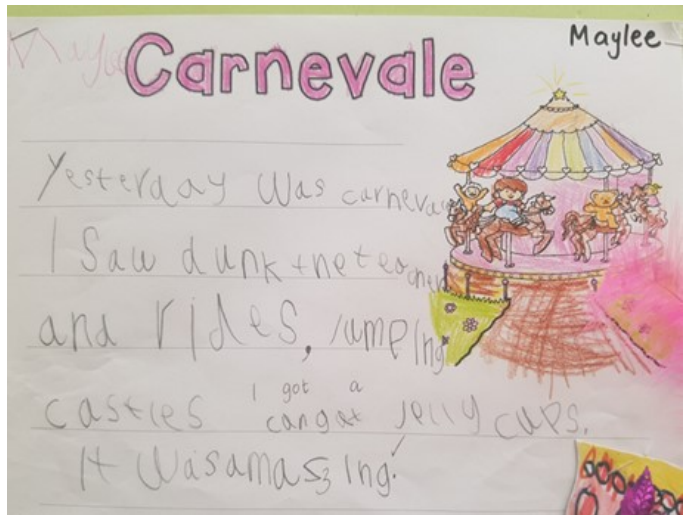 Maylee
Carnevale
Yesterday was carneva
I saw dunk the teacher
and rides, jumping
castles I got a cangat jelly cups.
It was amaszing!